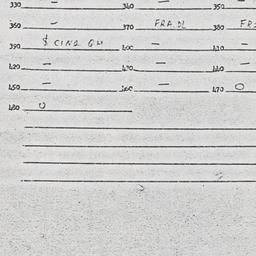 330 — 340 — 350 —
360 — 370 FRA.DL 380 FR
390 400 — 410 —
420 — 430 — 440 —
450 — 460 — 470 0
480 0